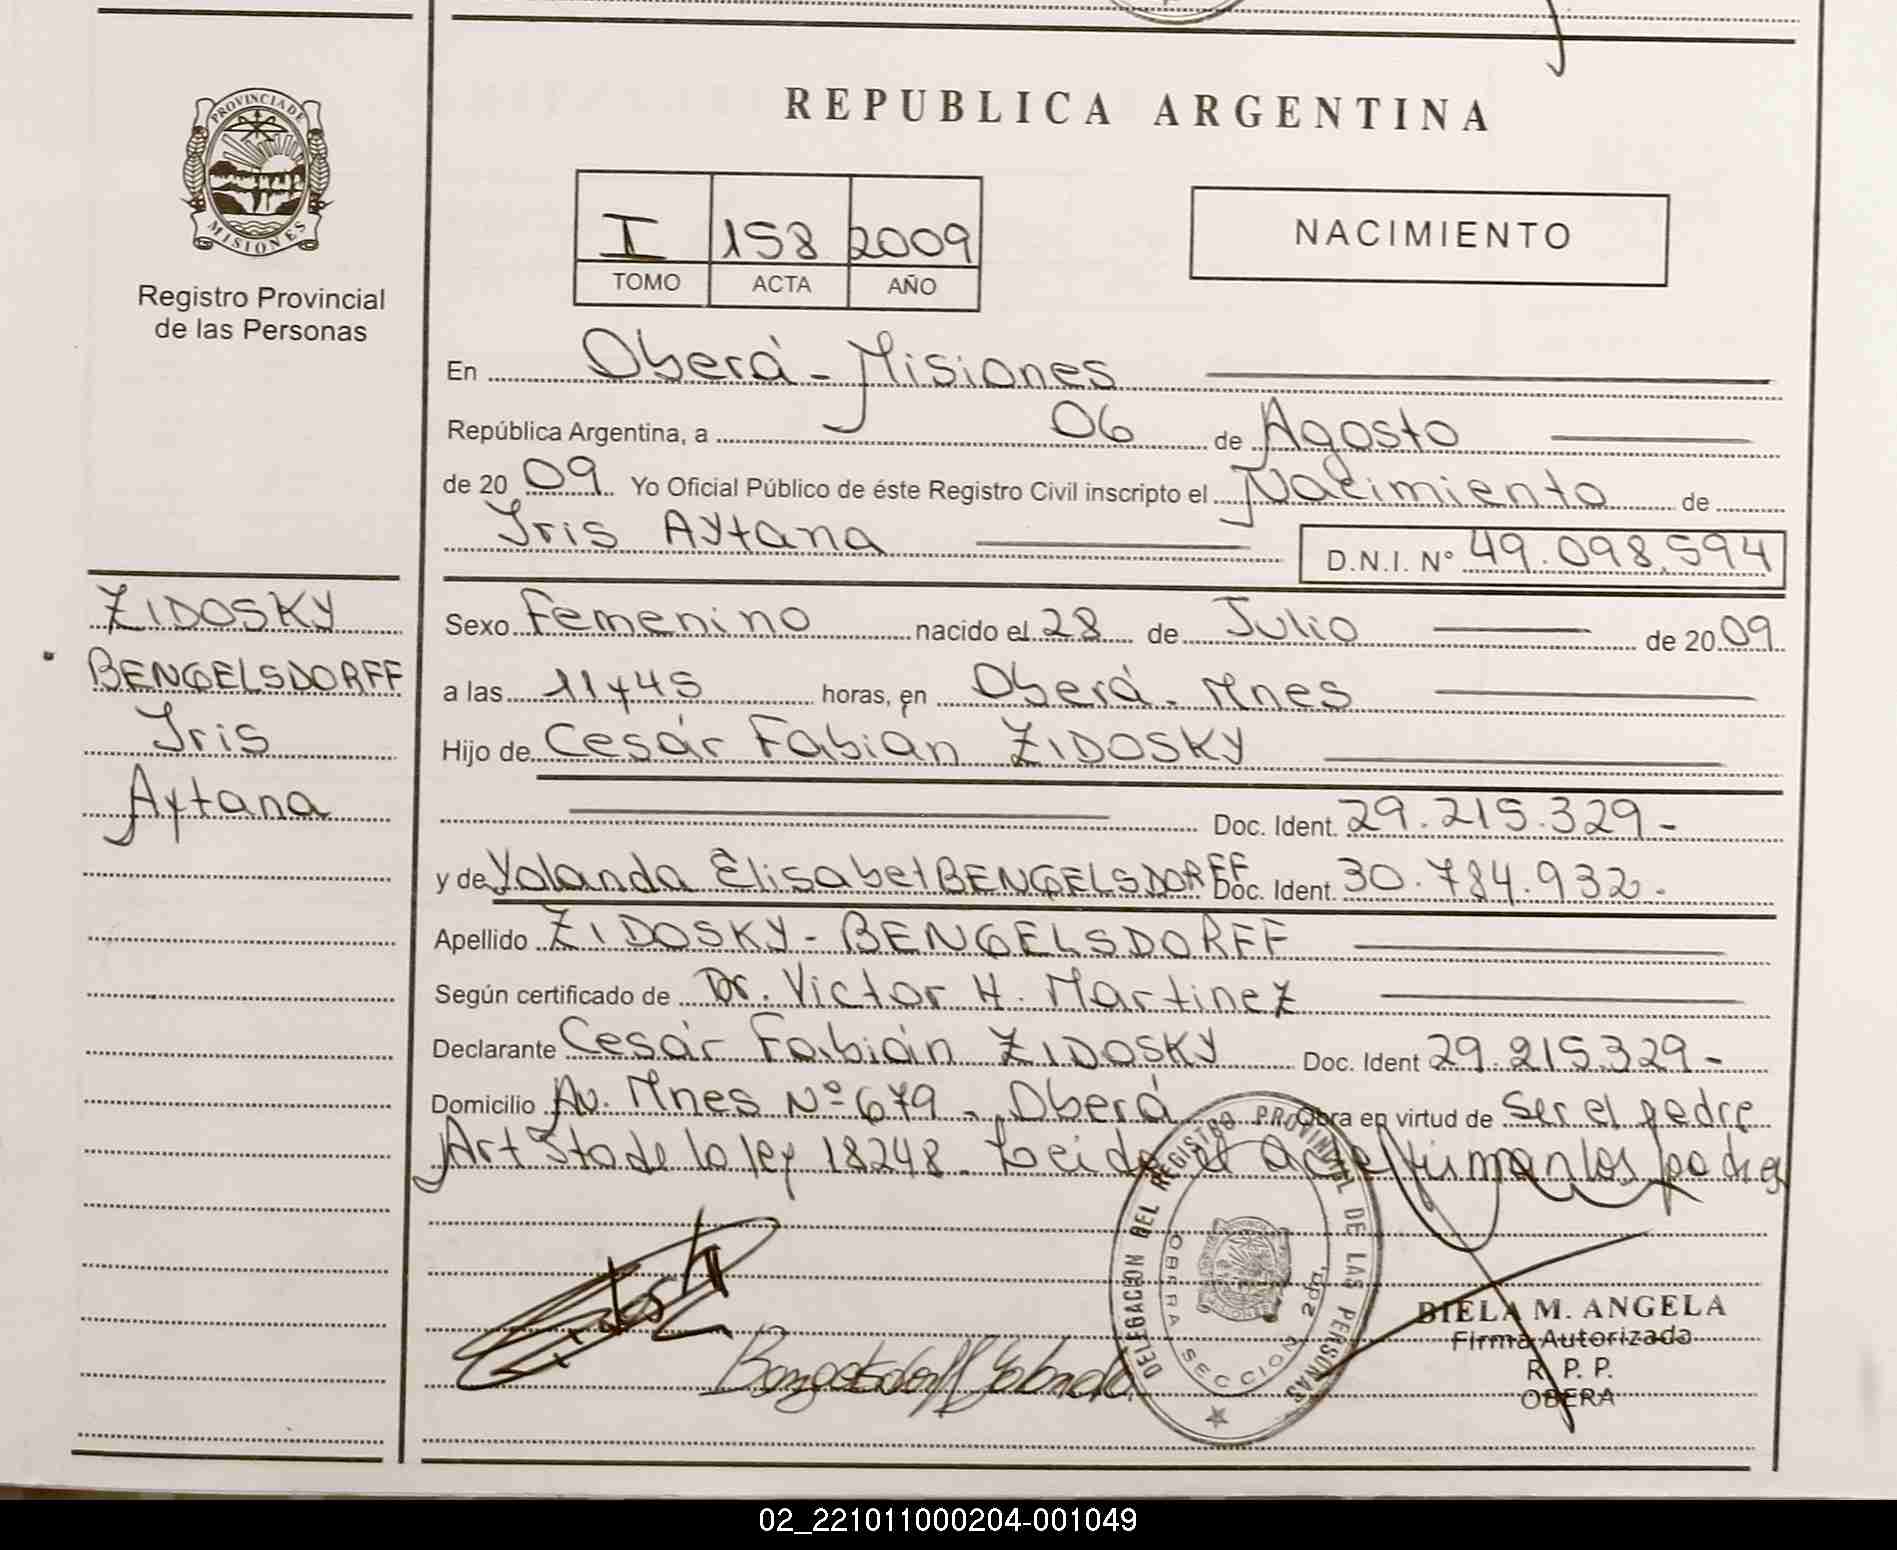 REPUBLICA ARGENTINA
PROVINCIA DE
MISIONES
Registro Provincial
de las Personas
I 158 2009
TOMO ACTA AÑO
NACIMIENTO
En Oberá - Misiones
República Argentina, a 06 de Agosto
de 20 09 Yo Oficial Público de éste Registro Civil inscripto el Nacimiento de
Iris Aytana D.N.I. Nº 49.098.594
ZIDOSKY
BENGELSDORFF
Iris
Aytana
Sexo Femenino nacido el 28 de Julio de 20 09
a las 11 y 45 horas, en Oberá - Mnes
Hijo de Cesár Fabian ZIDOSKY
Doc. Ident. 29.215.329-
y de Yolanda Elisabet BENGELSDORFF Doc. Ident. 30.784.932-
Apellido ZIDOSKY - BENGELSDORFF
Según certificado de Dr. Victor H. Martinez
Declarante Cesár Fabián ZIDOSKY Doc. Ident 29.215.329-
Domicilio Av. Mnes Nº 679 - Oberá Obra en virtud de ser el padre
Art 5to de la ley 18248. Leida el acta firman los padres
DELEGACION DEL REGISTRO PROVINCIAL DE LAS PERSONAS
OBERA SECCION 2da.
Bengelsdorff Yolanda
BIELA M. ANGELA
Firma Autorizada
R. P. P.
OBERA
02_221011000204-001049